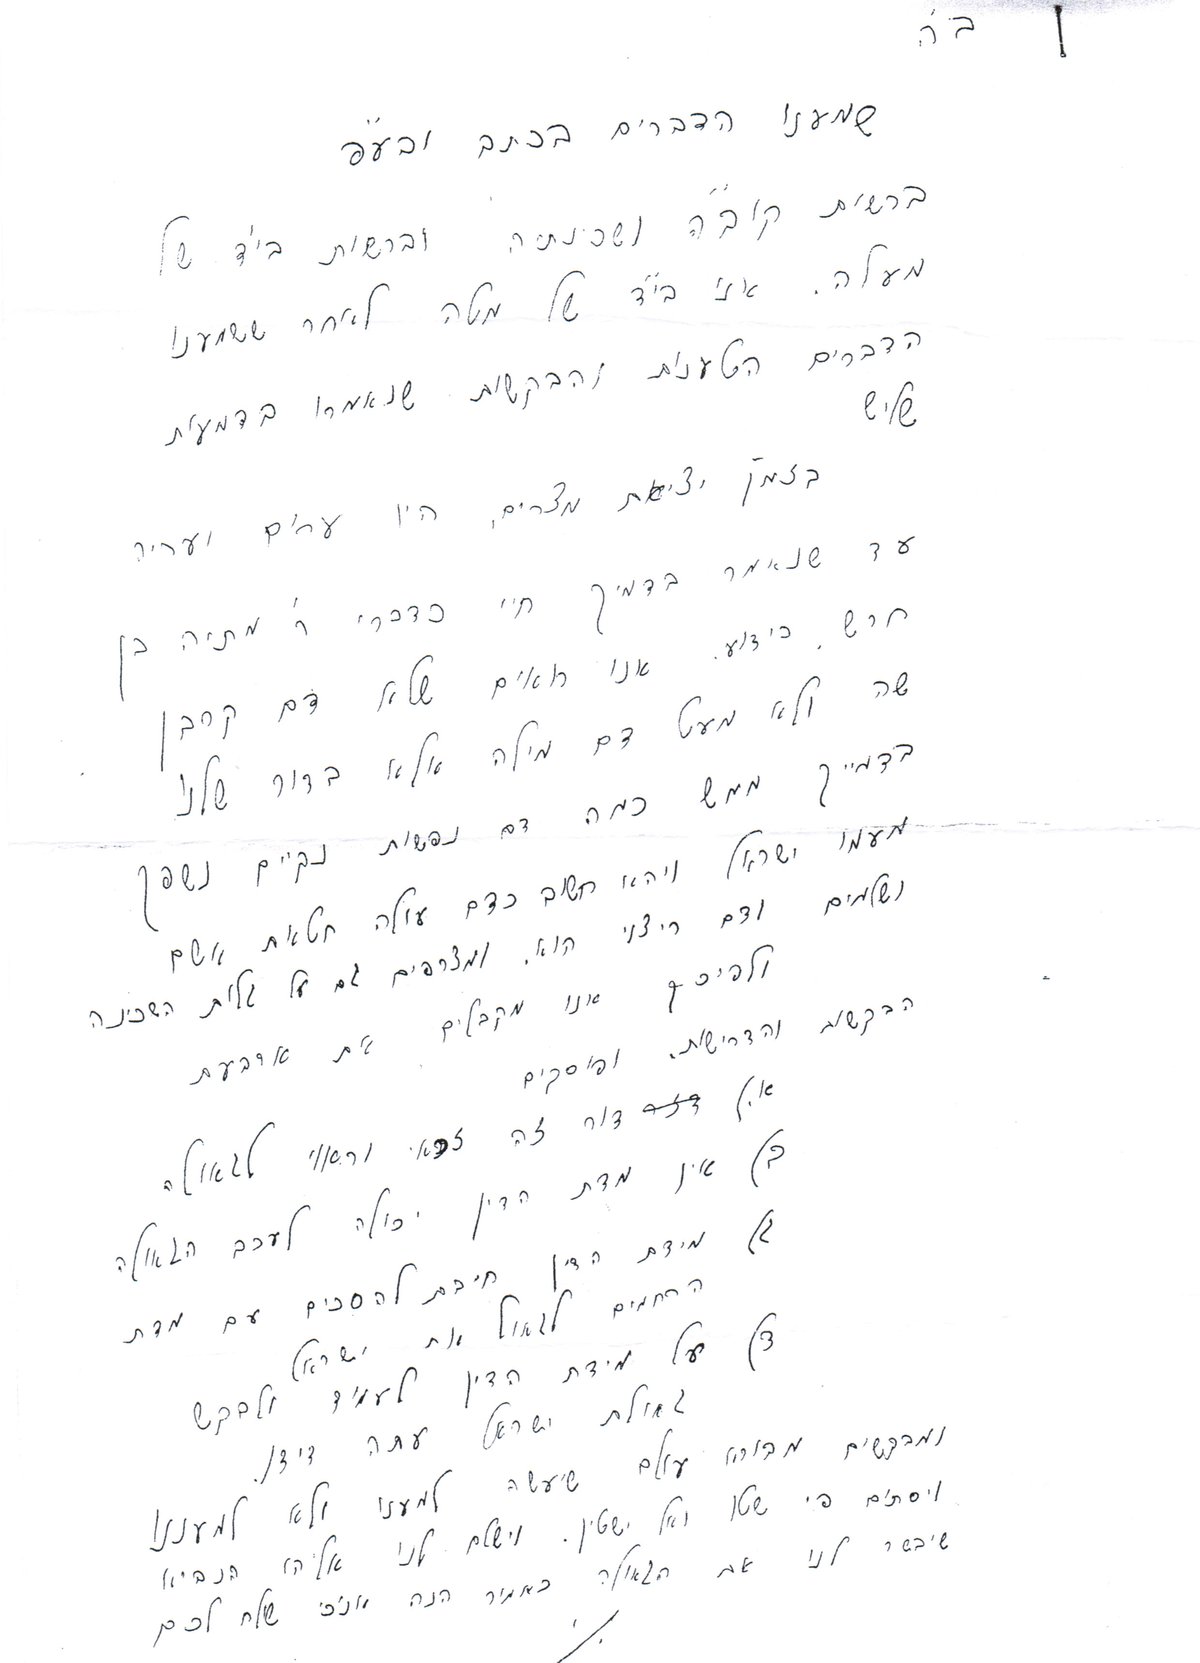 ב״ה
שמענו הדברים בכתב ובע״פ
ברשות קוב״ה ושכינתיה וברשות בי״ד של
מעלה. אנו בי״ד של מטה לאחר ששמענו
הדברים הטענות והבקשות שנאמרו בדמעות
שליש
בזמן יציאת מצרים, היו ערום ועריה
עד שנאמר בדמיך חיי כדברי ר' מתיה בן
חרש כידוע. אנו רואים שלא דם קרבן
שה ולא מעט דם מילה אלא בדור שלנו
בדמייך ממש כמה דם נפשות נקיים נשפך
מעמו ישראל ויהא חשוב כדם עולה חטאת אשם
ושלמים ודם ריצוי הוא. ומצרפים גם על גלות השכינה
ולפיכך אנו מקבלים את ארבעת
הבקשות והדרישות. ופוסקים
א.) דור זה זכאי וראוי לגאולה
ב) אין מדת הדין יכולה לעכב הגאולה
ג) מידת הדין חיבת להסכים עם מדת
הרחמים לגאול את ישראל
ד) על מידת הדין לעמוד ולבקש
גאולת ישראל עתה דידן.
ומבקשים מבורא עולם שיעשה למענו ולא למעננו
ויסתום פי שטן ואל ישטין. וישלח לנו אליהו הנביא
שיבשר לנו את הגאולה כאמור הנה אנוכי שלח לכם
./.